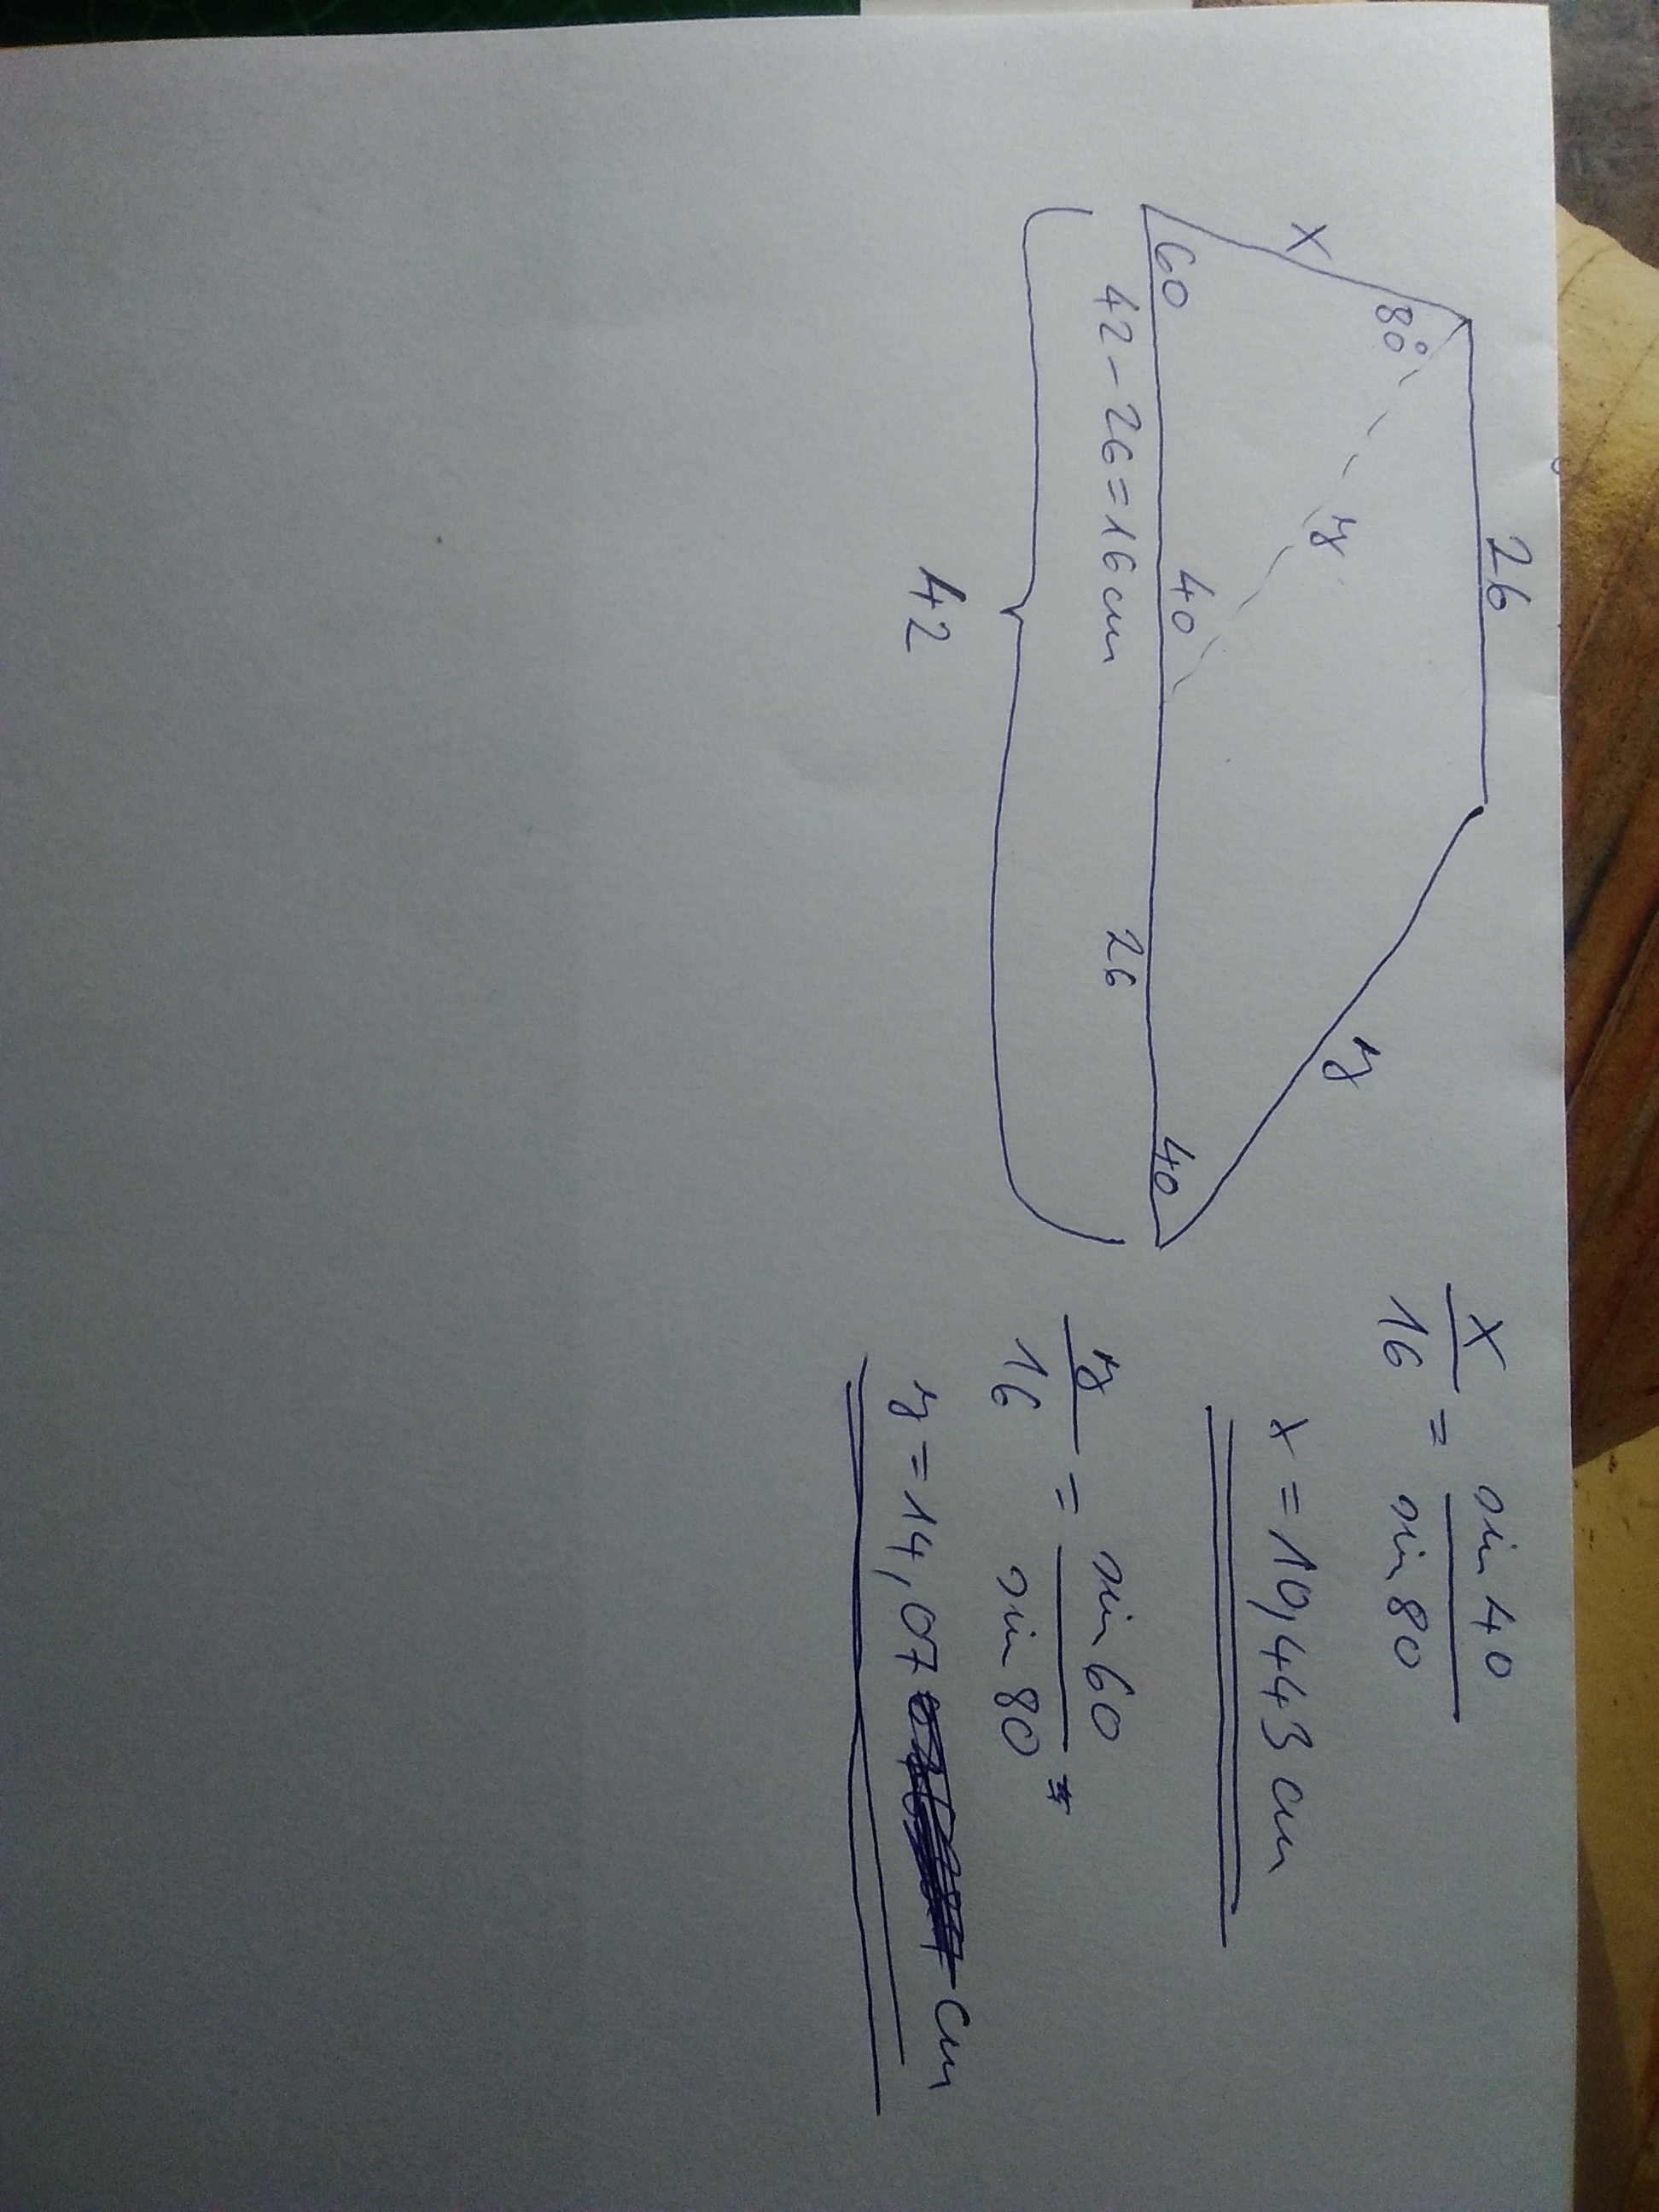 26
x
80°
y
y
60
40
40
42-26=16cm
26
42
x/16 = sin 40/sin 80
x = 10,443 cm
y/16 = sin 60/sin 80
y = 14,07 cm